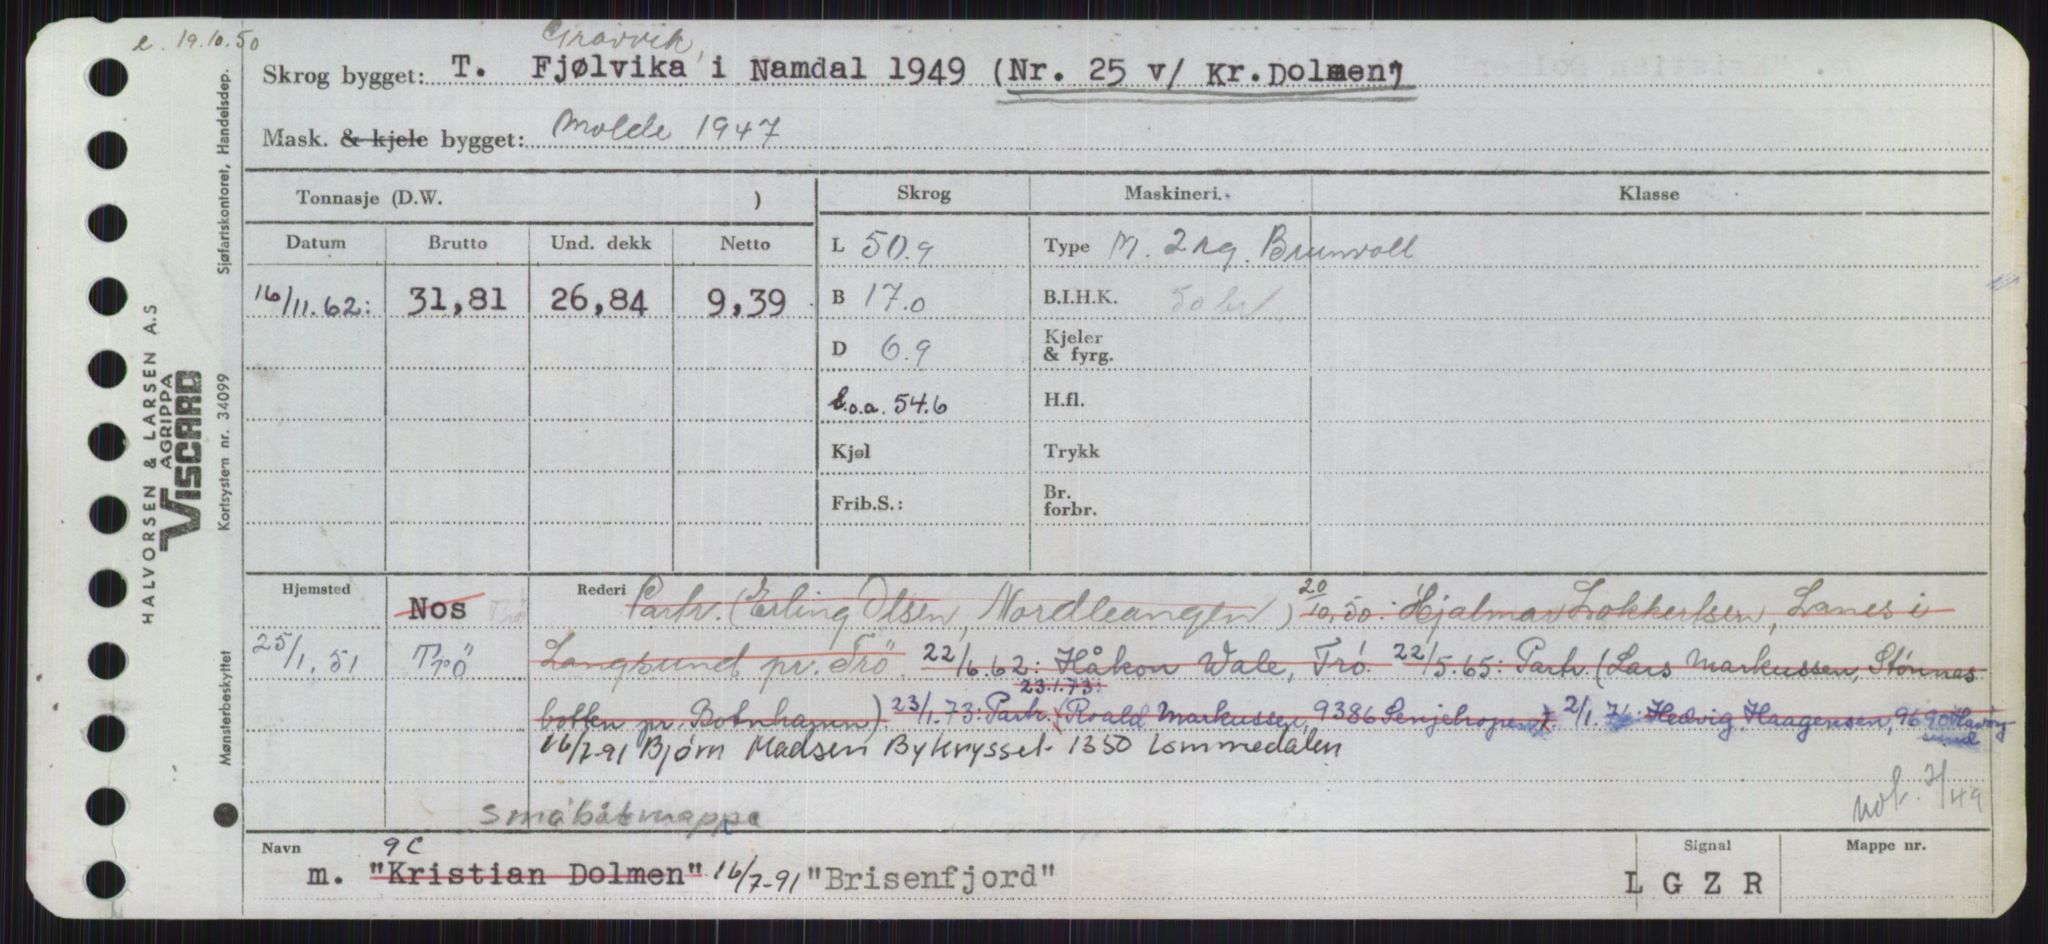 e. 19.10.50
Gravvik
Skrog bygget: T. Fjølvika i Namdal 1949 (Nr. 25 v/ Kr.Dolmen)
Mask. & kjele bygget: Molde 1947
Tonnasje (D.W. )
Skrog Maskineri. Klasse
Datum Brutto Und. dekk Netto
L 50.9 Type M. 2 sg. Brunvoll
16/11.62: 31,81 26,84 9,39
B 17.0 B.I.H.K. 50 br
D 6.9 Kjeler & fyrg.
l.o.a. 54.6 H.fl.
Kjøl Trykk
Frib.S.: Br. forbr.
Hjemsted Nos Trö Rederi Partr. (Erling Olsen, Nordleangen) 20/10.50: Hjalmar Lokkertsen, Lanes i
25/1.51 Trö Langsund pr. Trö 22/6.62: Håkon Wale, Trö. 22/5.65: Partr. (Lars Markussen, Stønnes
23.1.73:
botten pr. Botnhamn) 23/1.73: Partr. (Roald Markussen, 9386 Senjehopen) 2/1.76: Hedvig Haagensen, 9690 Havøy
sund
16/7-91 Bjørn Madsen Bykrysset 1350 Lommedalen
nok. 7/49
Småbåtmappe
Navn 9C Signal Mappe nr.
m. "Kristian Dolmen" 16/7-91 "Brisenfjord" L G Z R
HALVORSEN & LARSEN A.S
AGRIPPA
VISCARD
Sjøfartskontoret, Handelsdep.
Kortsystem nr. 34099
Mønsterbeskyttet